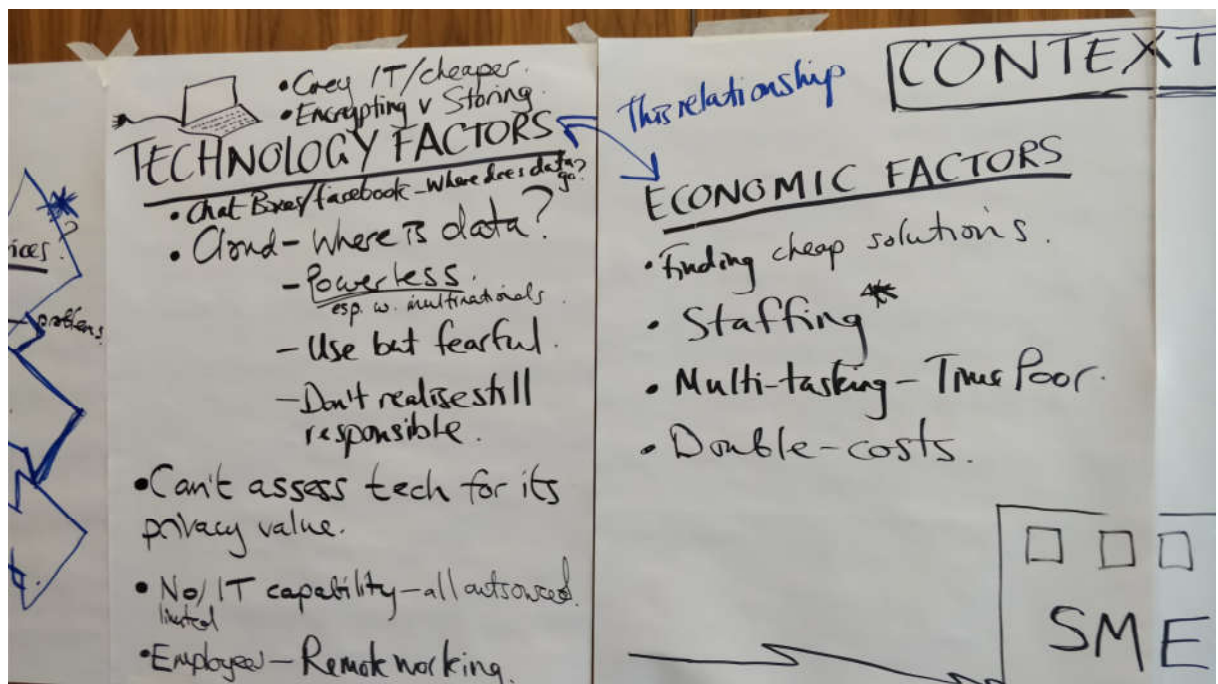 ices?
?
problems
• Grey IT/cheaper.
• Encrypting v Storing.
TECHNOLOGY FACTORS
• Chat Boxes/facebook - Where does data go?
• Cloud - Where is data?
- Powerless.
esp. w. multinationals.
- Use but fearful.
- Don't realise still
responsible.
• Can't assess tech for its
privacy value.
• No/limited IT capability - all outsourced.
• Employees - Remote working.
This relationship
CONTEXT
ECONOMIC FACTORS
• Finding cheap solutions.
• Staffing *
• Multi-tasking - Time Poor.
• Double-costs.
SME